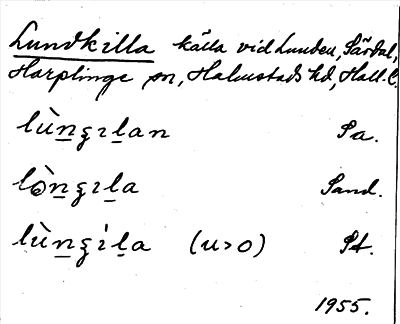 Lundkilla källa vid Lunden, Särdal,
Harplinge sn, Halmstads hd, Hall. l.
lùn̠ʒɪl̠an Sa.
lòn̠ʒɪl̠a Sand.
lùn̠ʒìl̠a (u>o) St.
1955.